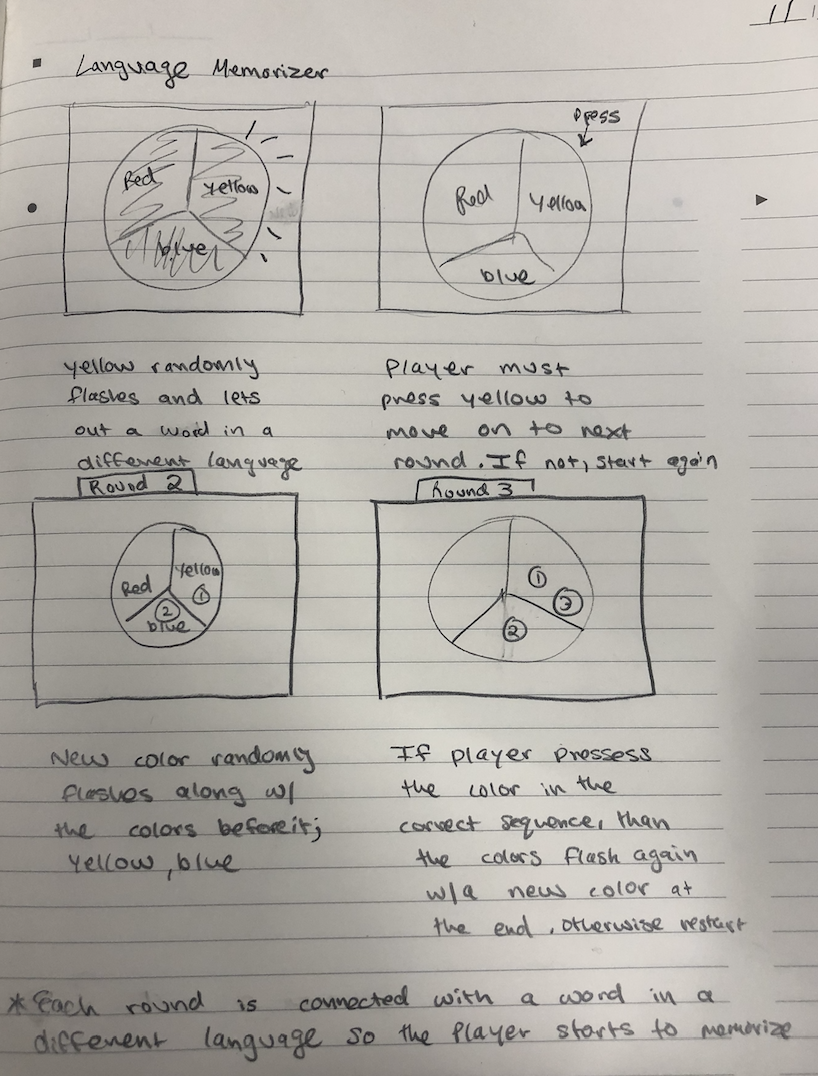 Language Memorizer
Red
yellow
blue
press
Red
yellow
blue
yellow randomly
flashes and lets
out a word in a
different language
Player must
press yellow to
move on to next
round. If not, start again
Round 2
Red
yellow
①
②
blue
Round 3
①
③
②
New color randomly
flashes along w/
the colors before it;
yellow, blue
If player pressess
the color in the
correct sequence, than
the colors flash again
w/a new color at
the end, otherwise restart
* Each round is connected with a word in a
different language so the player starts to memorize